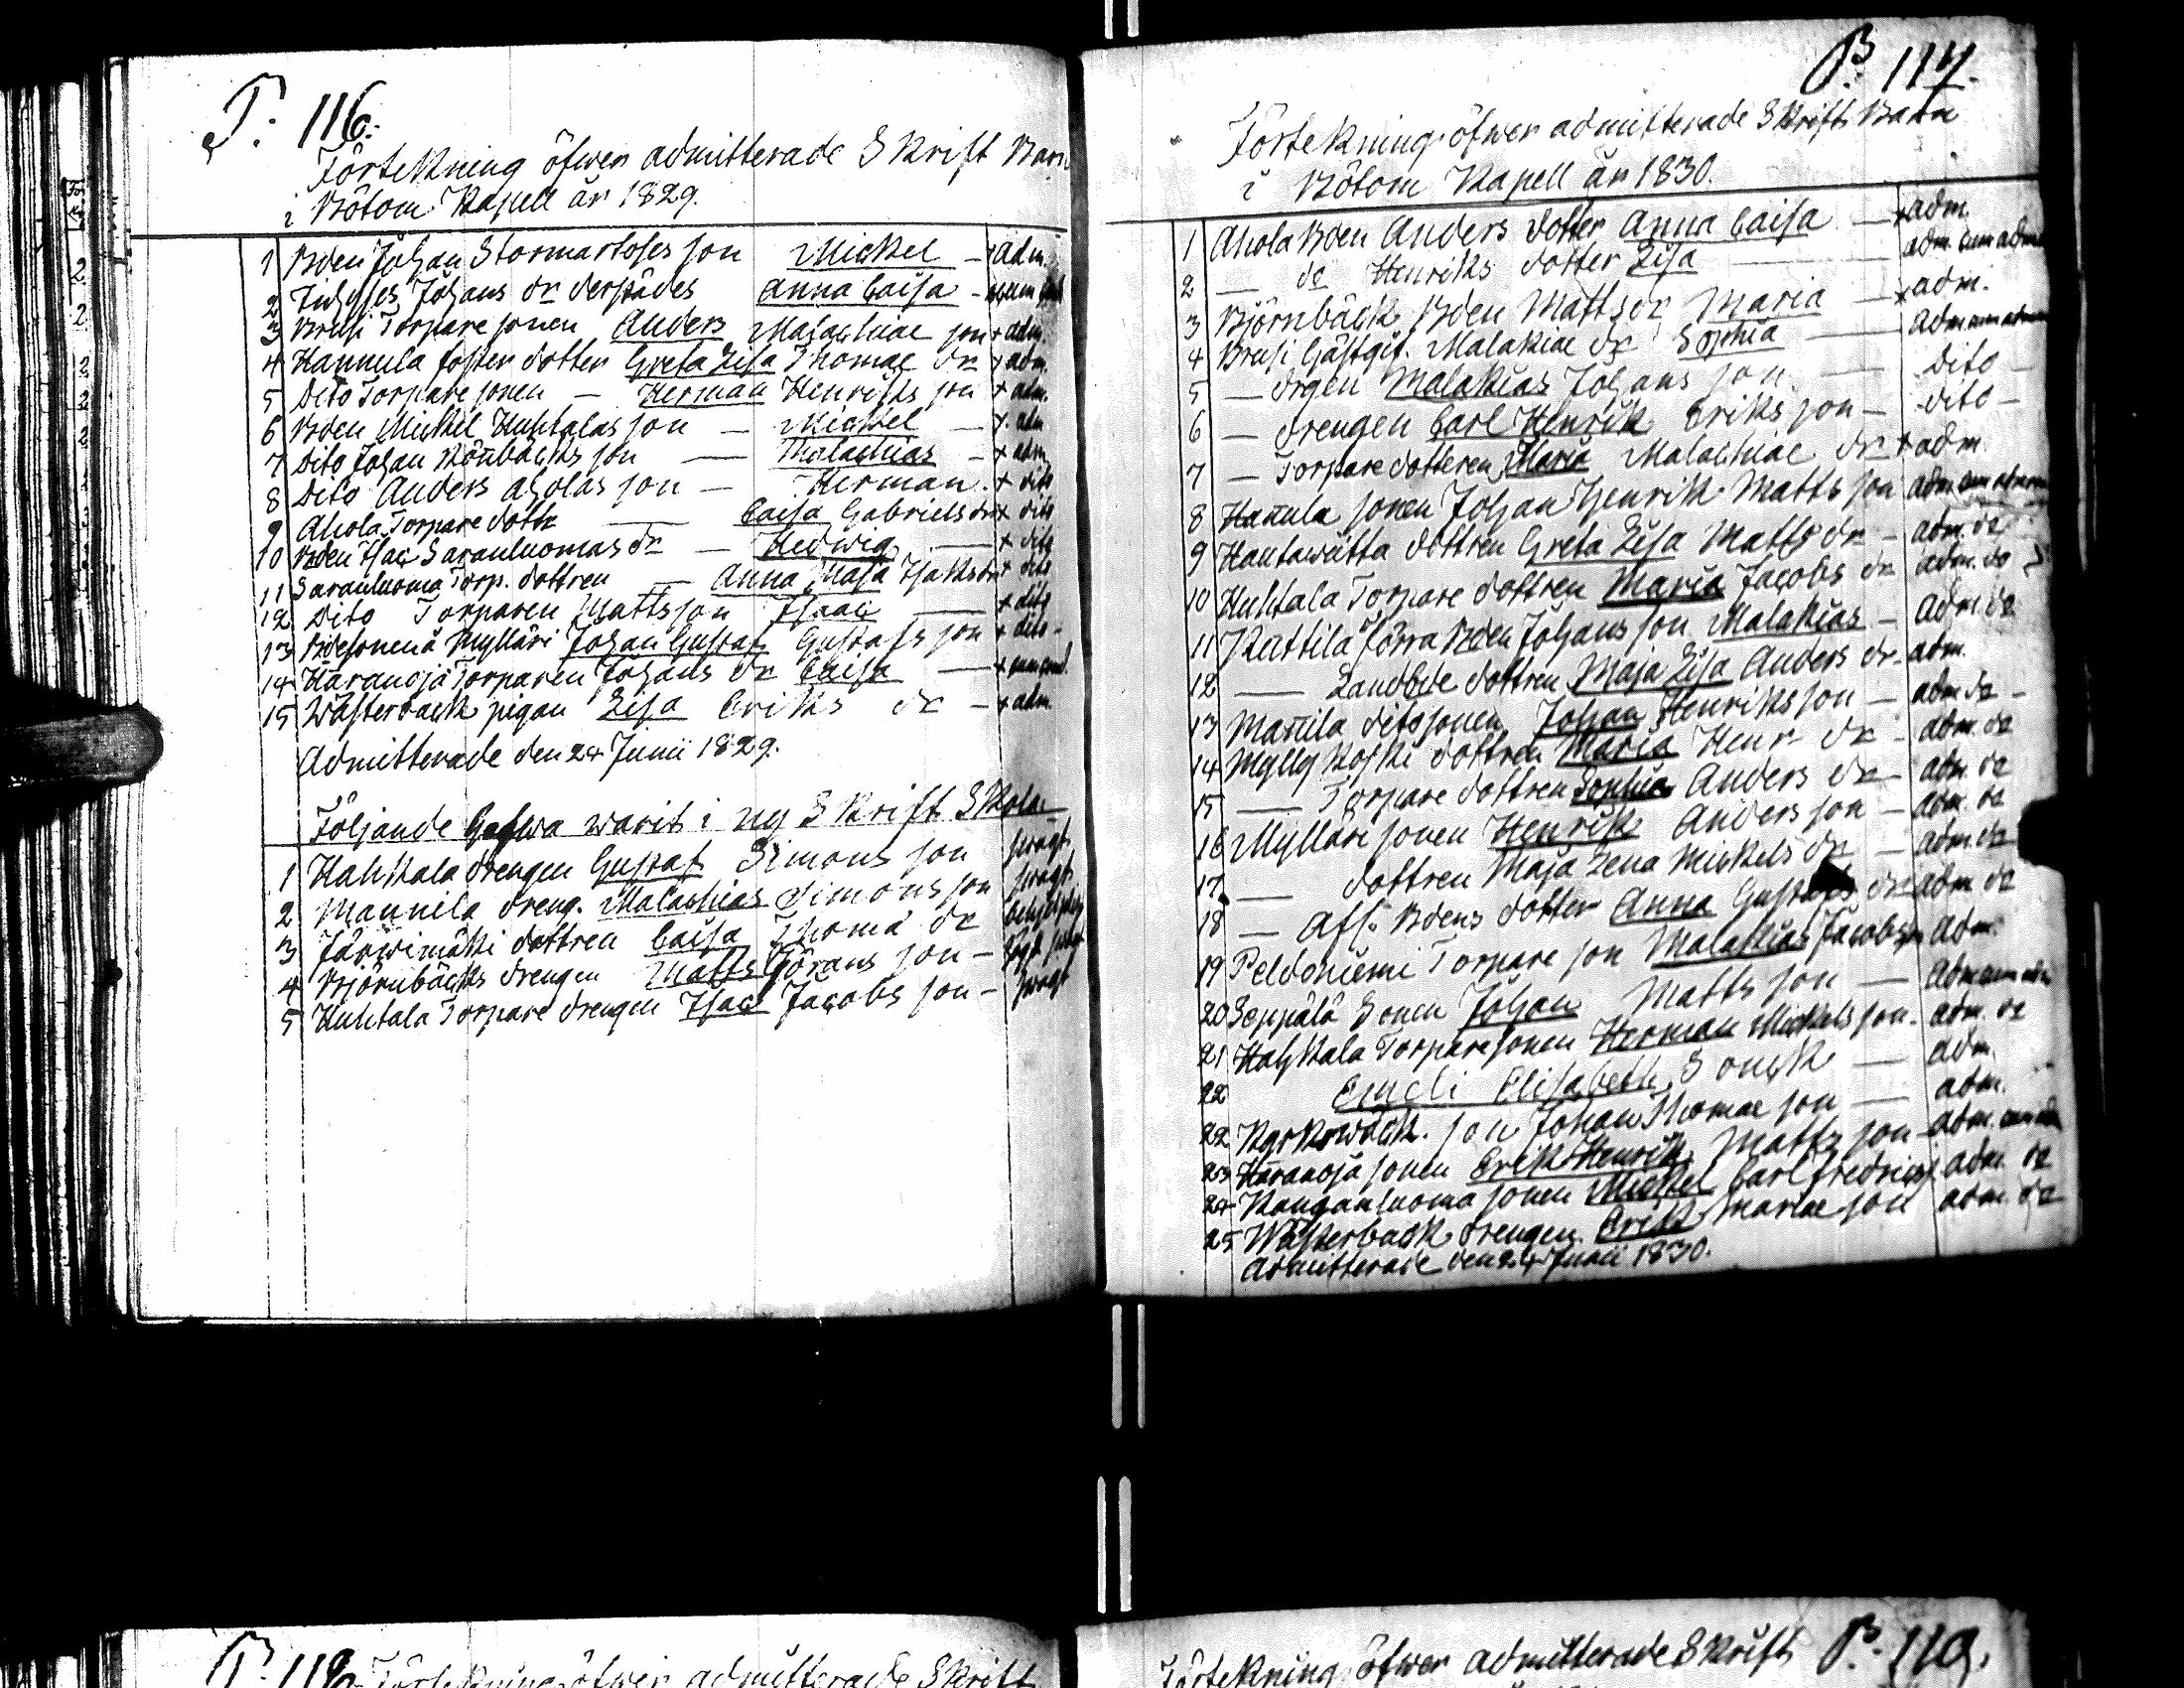 P. 116.
Förtekning öfwer admitterade Skrift Barn
i Bötom Kapell år 1829.
1 Bden Johan Stormartoses son Mickel — + adm.
2 Johans dr Anna Caisa —
3 Brusi Torpare sonen Anders Malachiae son + adm.
4 Hannula foster dotter Greta Lisa Thomae dr + adm.
5 Dito Torpare sonen — Herman Henriks son + adm.
6 Bden Mickel Huhtalas son — Mickel — + adm
7 Dito Johan Rönbacks son — Malachias — + adm
8 Dito Anders Aholas son — Herman. + dito
9 Ahola Torpare dottr — Caisa Gabriels dr + dito
10 Bden Isac Saranluomas dr — Hedwig — + dito
11 Saranluoma Torp. dottren — Anna Maja Isaks dr + dito
12 Dito Torparen Matts son Isaac — + dito
13 Bdesonen å Mylläri Johan Gustaf Gustafs son + dito -
14 Haranoja Torparen Johans dr Caisa — +
15 Wästerback pigan Lisa Eriks dr — + adm.
Admitterade den 24 Junii 1829.
Följande hafwa warit i ny Skrift Skola
1 Hahkala drengen Gustaf Simons son swagt
2 Mannila dreng. Malachias Simons son swagt
3 Järwimäki dottren Caisa Thomä dr
4 Björnbäcks drengen Matts Görans son —
5 Huhtala Torpare drengen Isac Jacobs son — swagt
P. 117.
Förtekning öfwer admitterade Skrift Barn
i Bötom Kapell år 1830.
1 Ahola Bden Anders dotter Anna Caisa — + adm.
2 — do Henriks dotter Lisa — adm. cum adm
3 Björnbäck Bden Matts dr Maria — + adm.
4 Brusi Gästgif. Malakiae dr Sophia — adm cum adm
5 — drgen Malakias Johans son — dito —
6 — drengen Carl Henrik Eriks son — dito —
7 — Torpare dotteren Maria Malachiae dr + adm.
8 Hanula sonen Johan Henrik Matts son adm cum adm
9 Hautawätta dottren Greta Lisa Matts dr — adm. do
10 Huhtala Torpare dottren Maria Jacobs dr adm. do
11 Kattila förra Bden Johans son Malakias — adm. do
12 — Landbde dottren Maja Lisa Anders dr — adm.
13 Manila dito sonen Johan Henriks son — adm do —
14 Myllykoski dottren Maria Henr dr — adm. do
15 — Torpare dottren Sophia Anders dr — adm. do
16 Mylläri sonen Henrik Anders son — adm. do
17 — dottren Maja Lena Mickels dr — adm. do
18 — Afl. Bdens dotter Anna Gustafs dr adm do
19 Peldoniemi Torpare son Malakias Jacobs adm.
20 Seppälä Sonen Johan Matts son — adm cum adm
21 Hahkala Torpare sonen Herman Mickels son. adm. do
22 Emeli Elisabeth Sonck — adm.
22 son Johan Thomae son — adm.
23 Haranoja sonen Erik Henrik Matts son — adm. cum adm
24 Kanganluoma sonen Mickel Carl fredrics adm. do
25 Wästerback drengen Erik Mariae son adm. do
Admitterade den 24 Junii 1830.
P. 118. Förtekning öfwer admitterade Skrift
Förtekning öfwer admitterade Skrift P. 119.